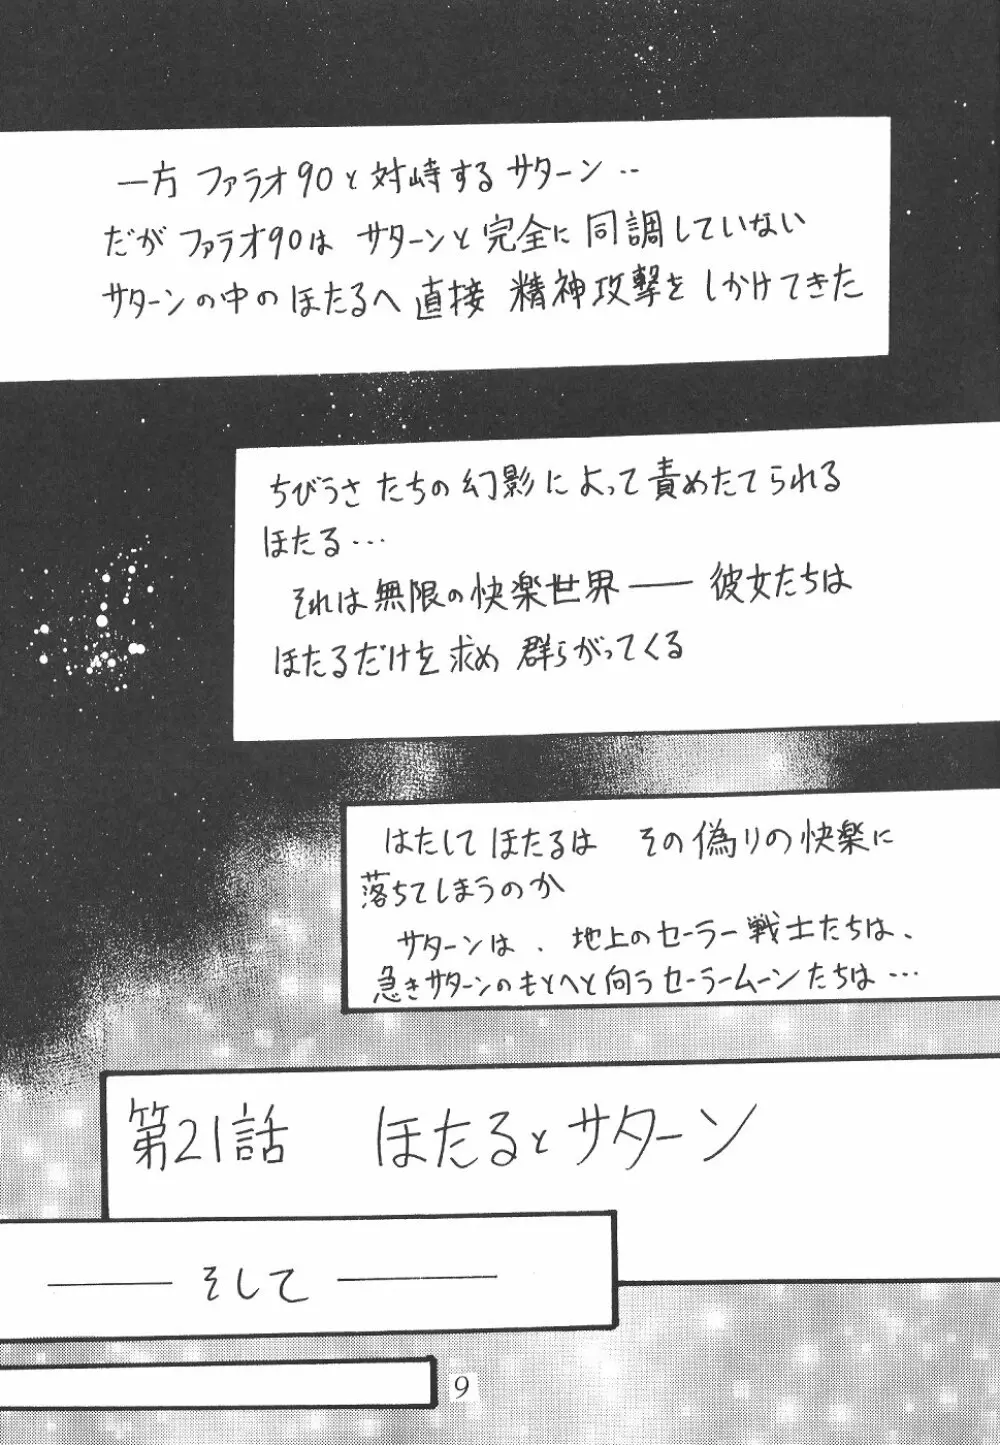 一方 ファラオ90と対峙するサターン‥
だがファラオ90は サターンと完全に同調していない
サターンの中のほたるへ直接 精神攻撃をしかけてきた
ちびうさたちの幻影によって責めたてられる
ほたる…
それは無限の快楽世界── 彼女たちは
ほたるだけを求め群らがってくる
はたしてほたるは その偽りの快楽に
落ちてしまうのか
サターンは、地上のセーラー戦士たちは、
急きサターンのもとへと向うセーラームーンたちは…
第21話 ほたるとサターン
── そして ──
9